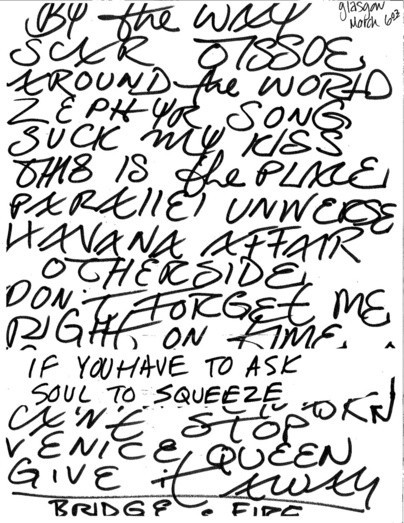 glasgow
March 6 03
BY the WAY
SCAR TISSUE
AROUND the WORLD
ZEPHYR SONG
SUCK MY KISS
THIS IS the PLACE
PARAllEl UNIVERSE
HAVANA AFFAIR
OTHERSIDE
DON'T FORGET ME
RIGHT ON TIME
IF YOU HAVE TO ASK
SOUL TO SQUEEZE
CAN'T STOP
VENICE QUEEN
GIVE it AWAY
BRIDGE • FIRE